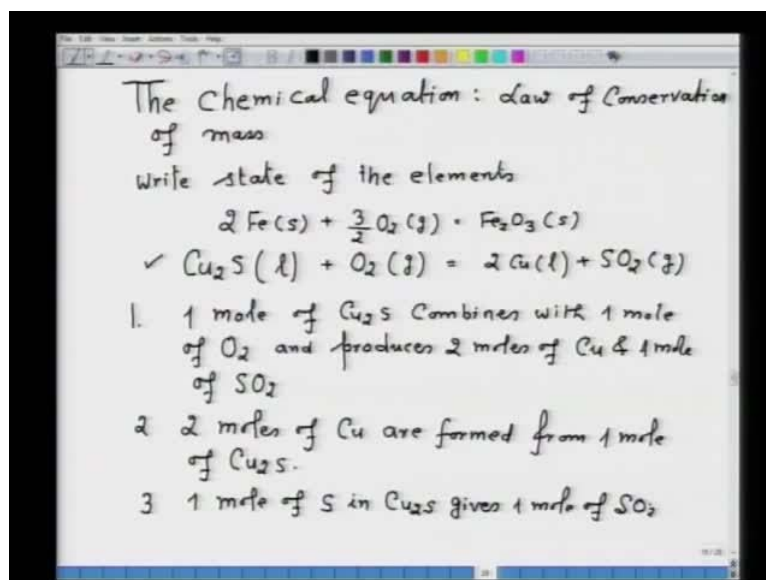 The Chemical equation : Law of Conservation
of mass
Write state of the elements
2 Fe (s) + 3/2 O₂ (g) = Fe₂O₃ (s)
✓ Cu₂S (l) + O₂ (g) = 2 Cu (l) + SO₂ (g)
1. 1 mole of Cu₂S Combines with 1 mole
of O₂ and produces 2 moles of Cu & 1 mole
of SO₂
2 2 moles of Cu are formed from 1 mole
of Cu₂S.
3 1 mole of S in Cu₂S gives 1 mole of SO₂